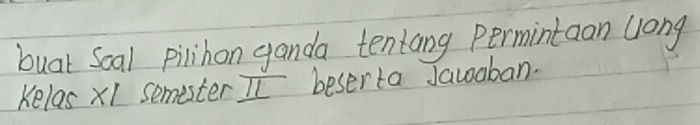 buat Soal Pilihan ganda tentang Permintaan Uang
Kelas XI Semester II beserta Jawaban.